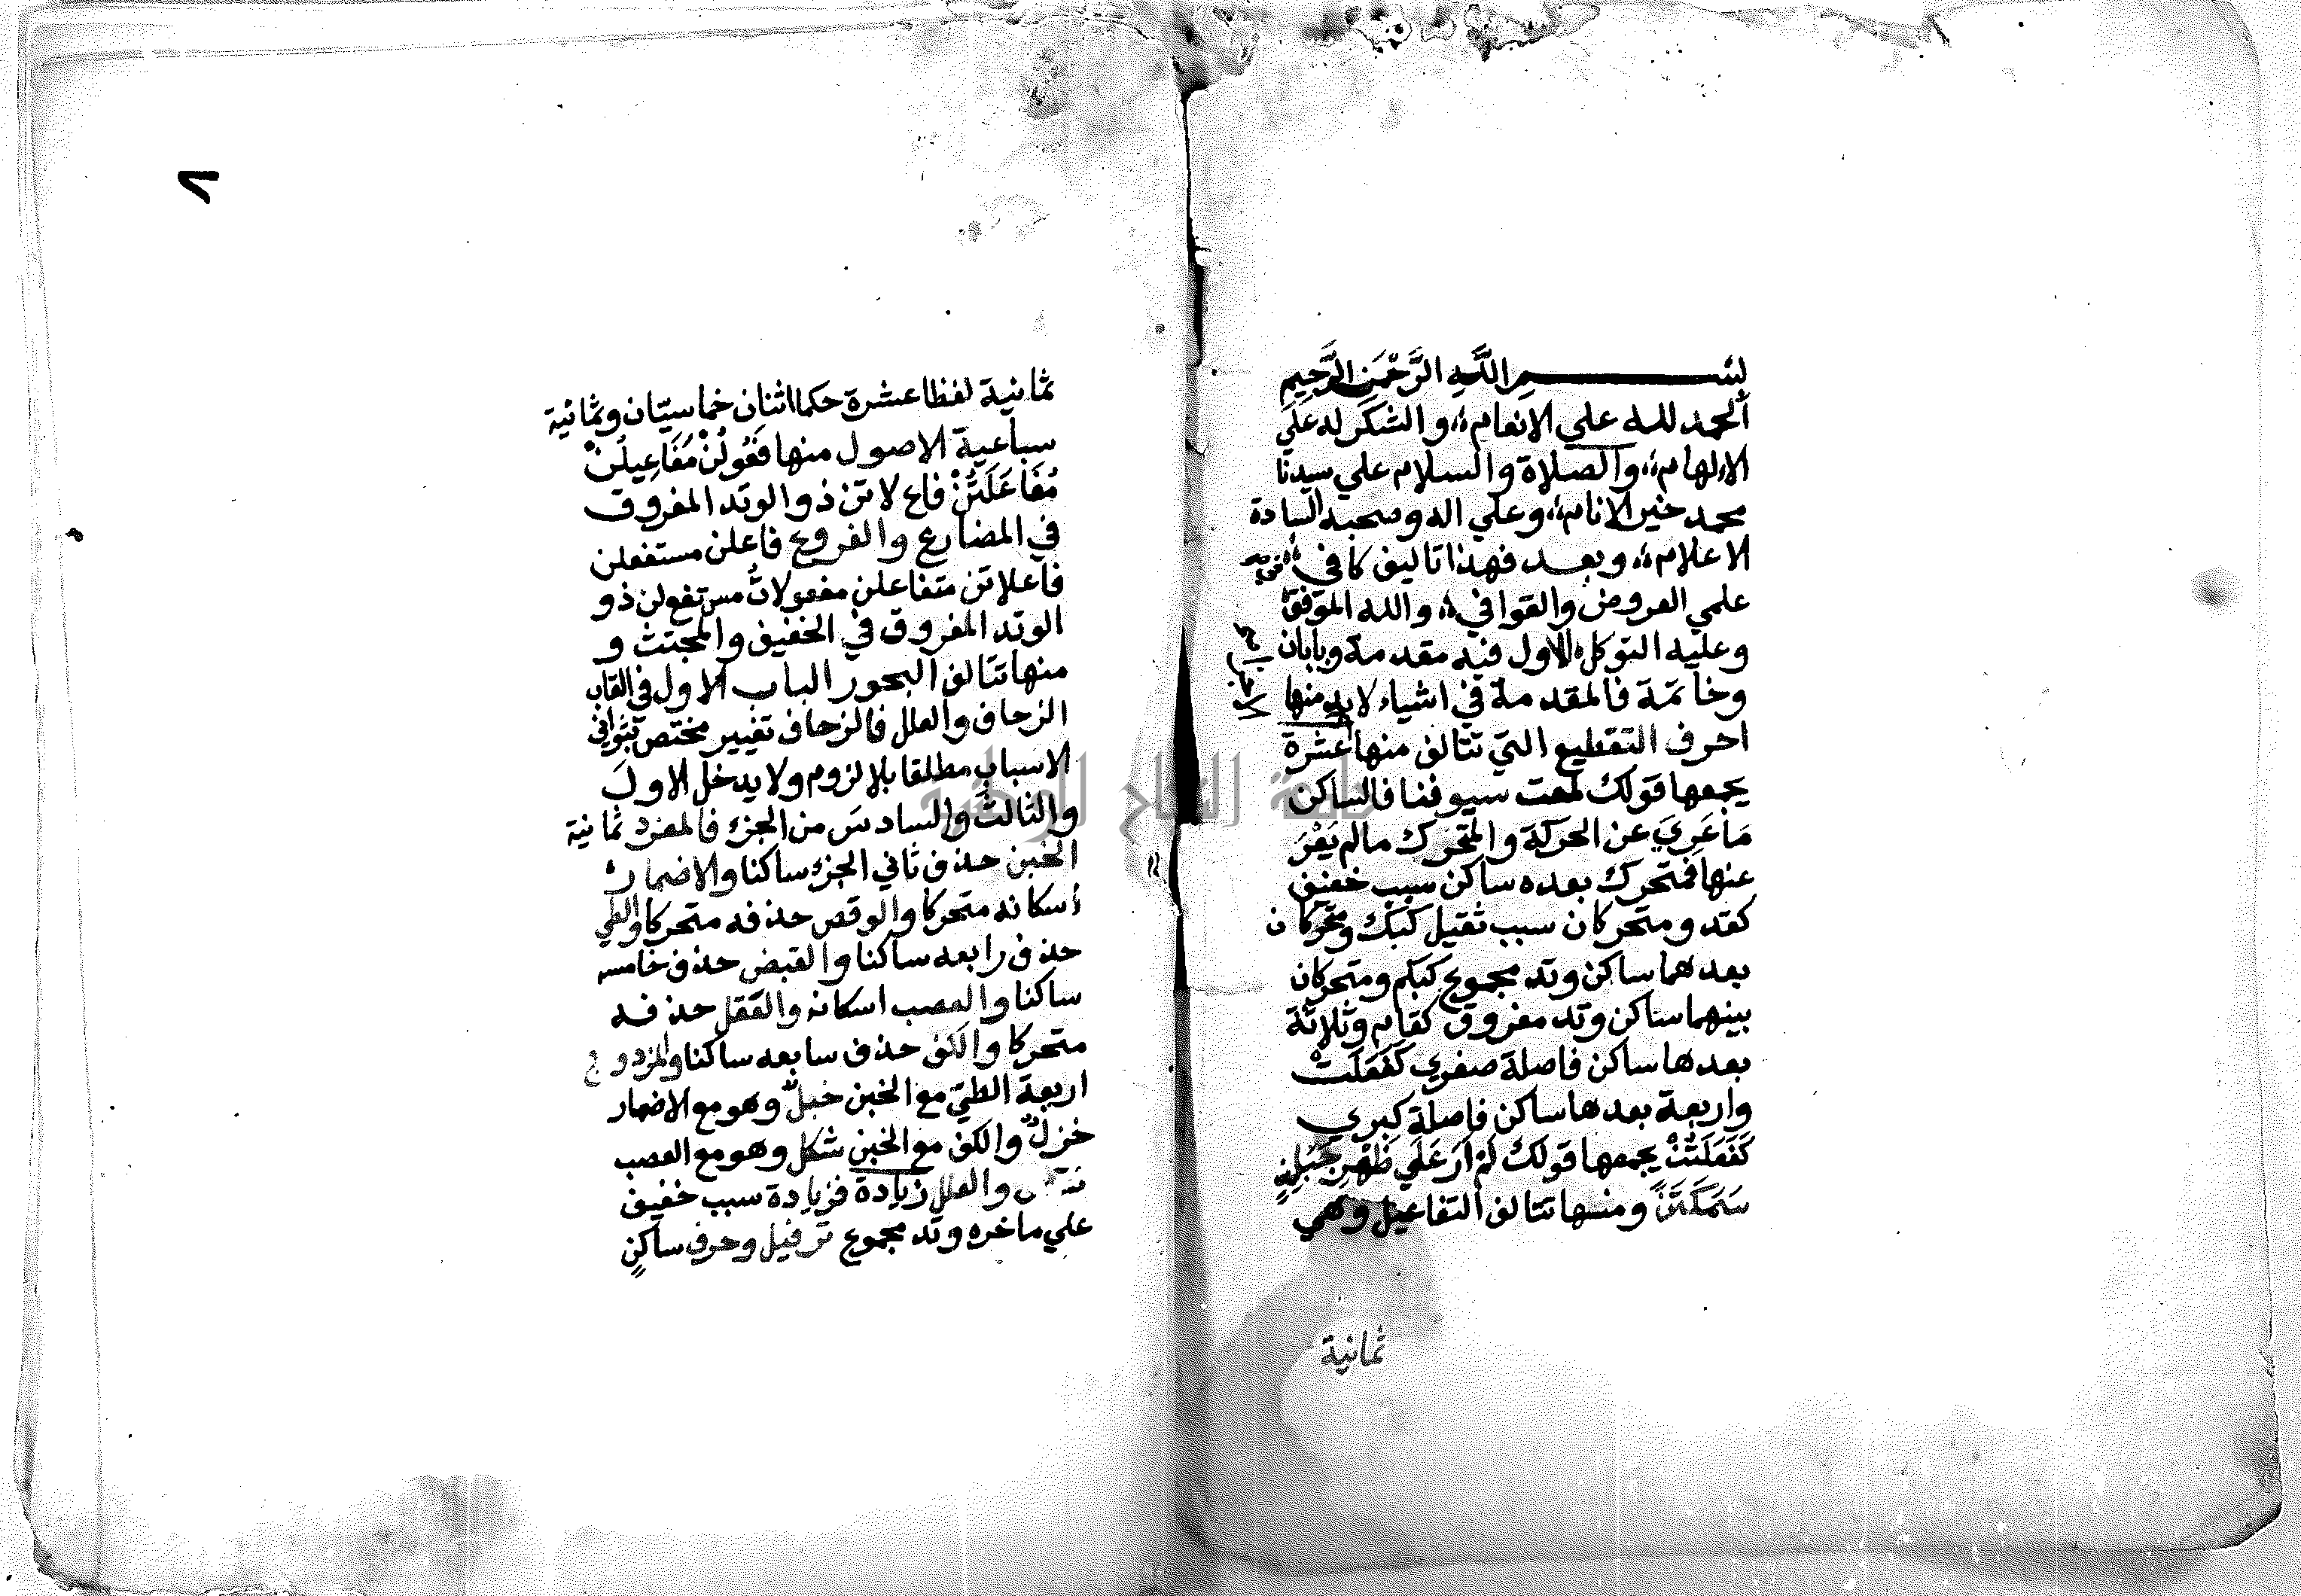 بسم الله الرحمن الرحيم
ألحمد لله علي الانعام، والشكر له علي
الالهام، والصلاة والسلام علي سيدنا
محمد خير الانام، وعلي اله وصحبه السادة
الاعلام، وبعد فهذا تاليف كافي،
علمي العروض والقوافي، والله الموفق
وعليه التوكل، الاول فيه مقدمة وبابان
وخاتمة فالمقدمة في اشياء لابد منها
احرف التقطيع التي تتالف منها عشرة
يجمعها قولك لمعت سيوفنا فالساكن
مَا عَرِيَ عن الحركة والمتحرك مالم يَعْرَ
عنها فمتحرك بعده ساكن سبب خفيف
كقد ومتحركان سبب ثقيل كبَك ومتحركان
بعدهما ساكن وتد مجموع كبكم ومتحركان
بينهما ساكن وتد مفروق كقام وثلاثة
بعدها ساكن فاصلة صغري كَفَعَلَتْ
واربعة بعدها ساكن فاصلة كبري
كَفَعَلَتُنْ يجمعها قولك لم ارَ عَلَي ظَهْرِ جَبَلٍ
سَمَكَةً ومنها تتالف التفاعيل وهي
ثمانية
٢
ثمانية لفظا عشرة حكما اثنان خماسيّان وثمانية
سباعية الاصول منها فَعُولُنْ مَفَاعِيلُنْ
مُفَاعَلَتُنْ فاع لاتن ذو الوتد المفروق
في المضارع والفروع فاعلن مستفعلن
فاعلاتن متفاعلن مفعولاتُ مس تفع لن ذو
الوتد المفروق في الخفيف والمجتث و
منها تتالف البحور الباب الاول في القاب
الزحاف والعلل فالزحاف تغيير مختص بثواني
الاسباب مطلقا بلا لزوم ولا يدخل الاول
والثالث والسادس من الجزء فالمفرد ثمانية
الخبن حذف ثاني الجزء ساكنا والاضمار
أسكانه متحركا والوقص حذفه متحركا والطي
حذف رابعه ساكنا والقبض حذف خامسه
ساكنا والعصب اسكانه والعقل حذفه
متحركا والكف حذف سابعه ساكنا والمزدوج
اربعة الطيّ مع الخبن خبلٌ وهو مع الاضمار
خزلٌ والكف مع الخبن شكل وهو مع العصب
والعلل زيادة فزيادة سبب خفيف
علي ما اخره وتد مجموع ترفيل وحرف ساكنٍ